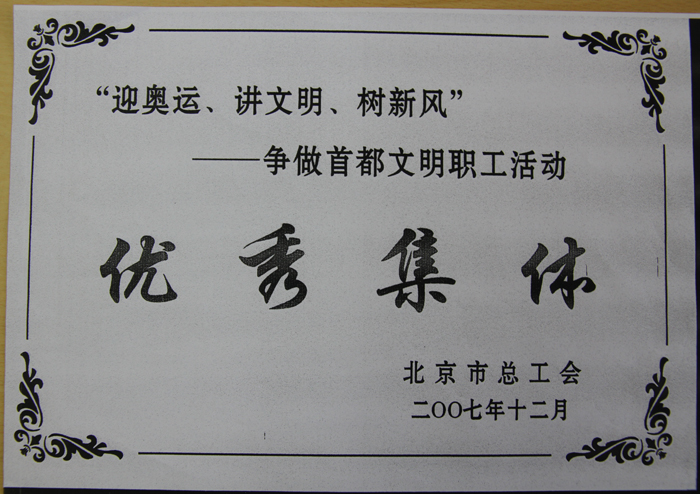 “迎奥运、讲文明、树新风”
——争做首都文明职工活动
优秀集体
北京市总工会
二〇〇七年十二月